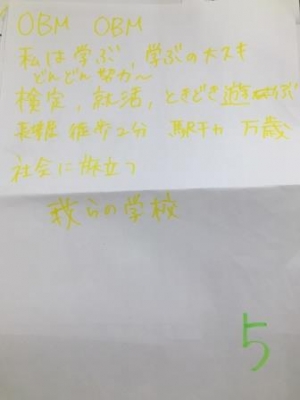 OBM OBM
私は学ぶ,学ぶの大スキ
どんどん努力〜
検定,就活,ときどき遊
徒歩2分 駅チカ 万歳
社会に旅立つ
我らの学校
5